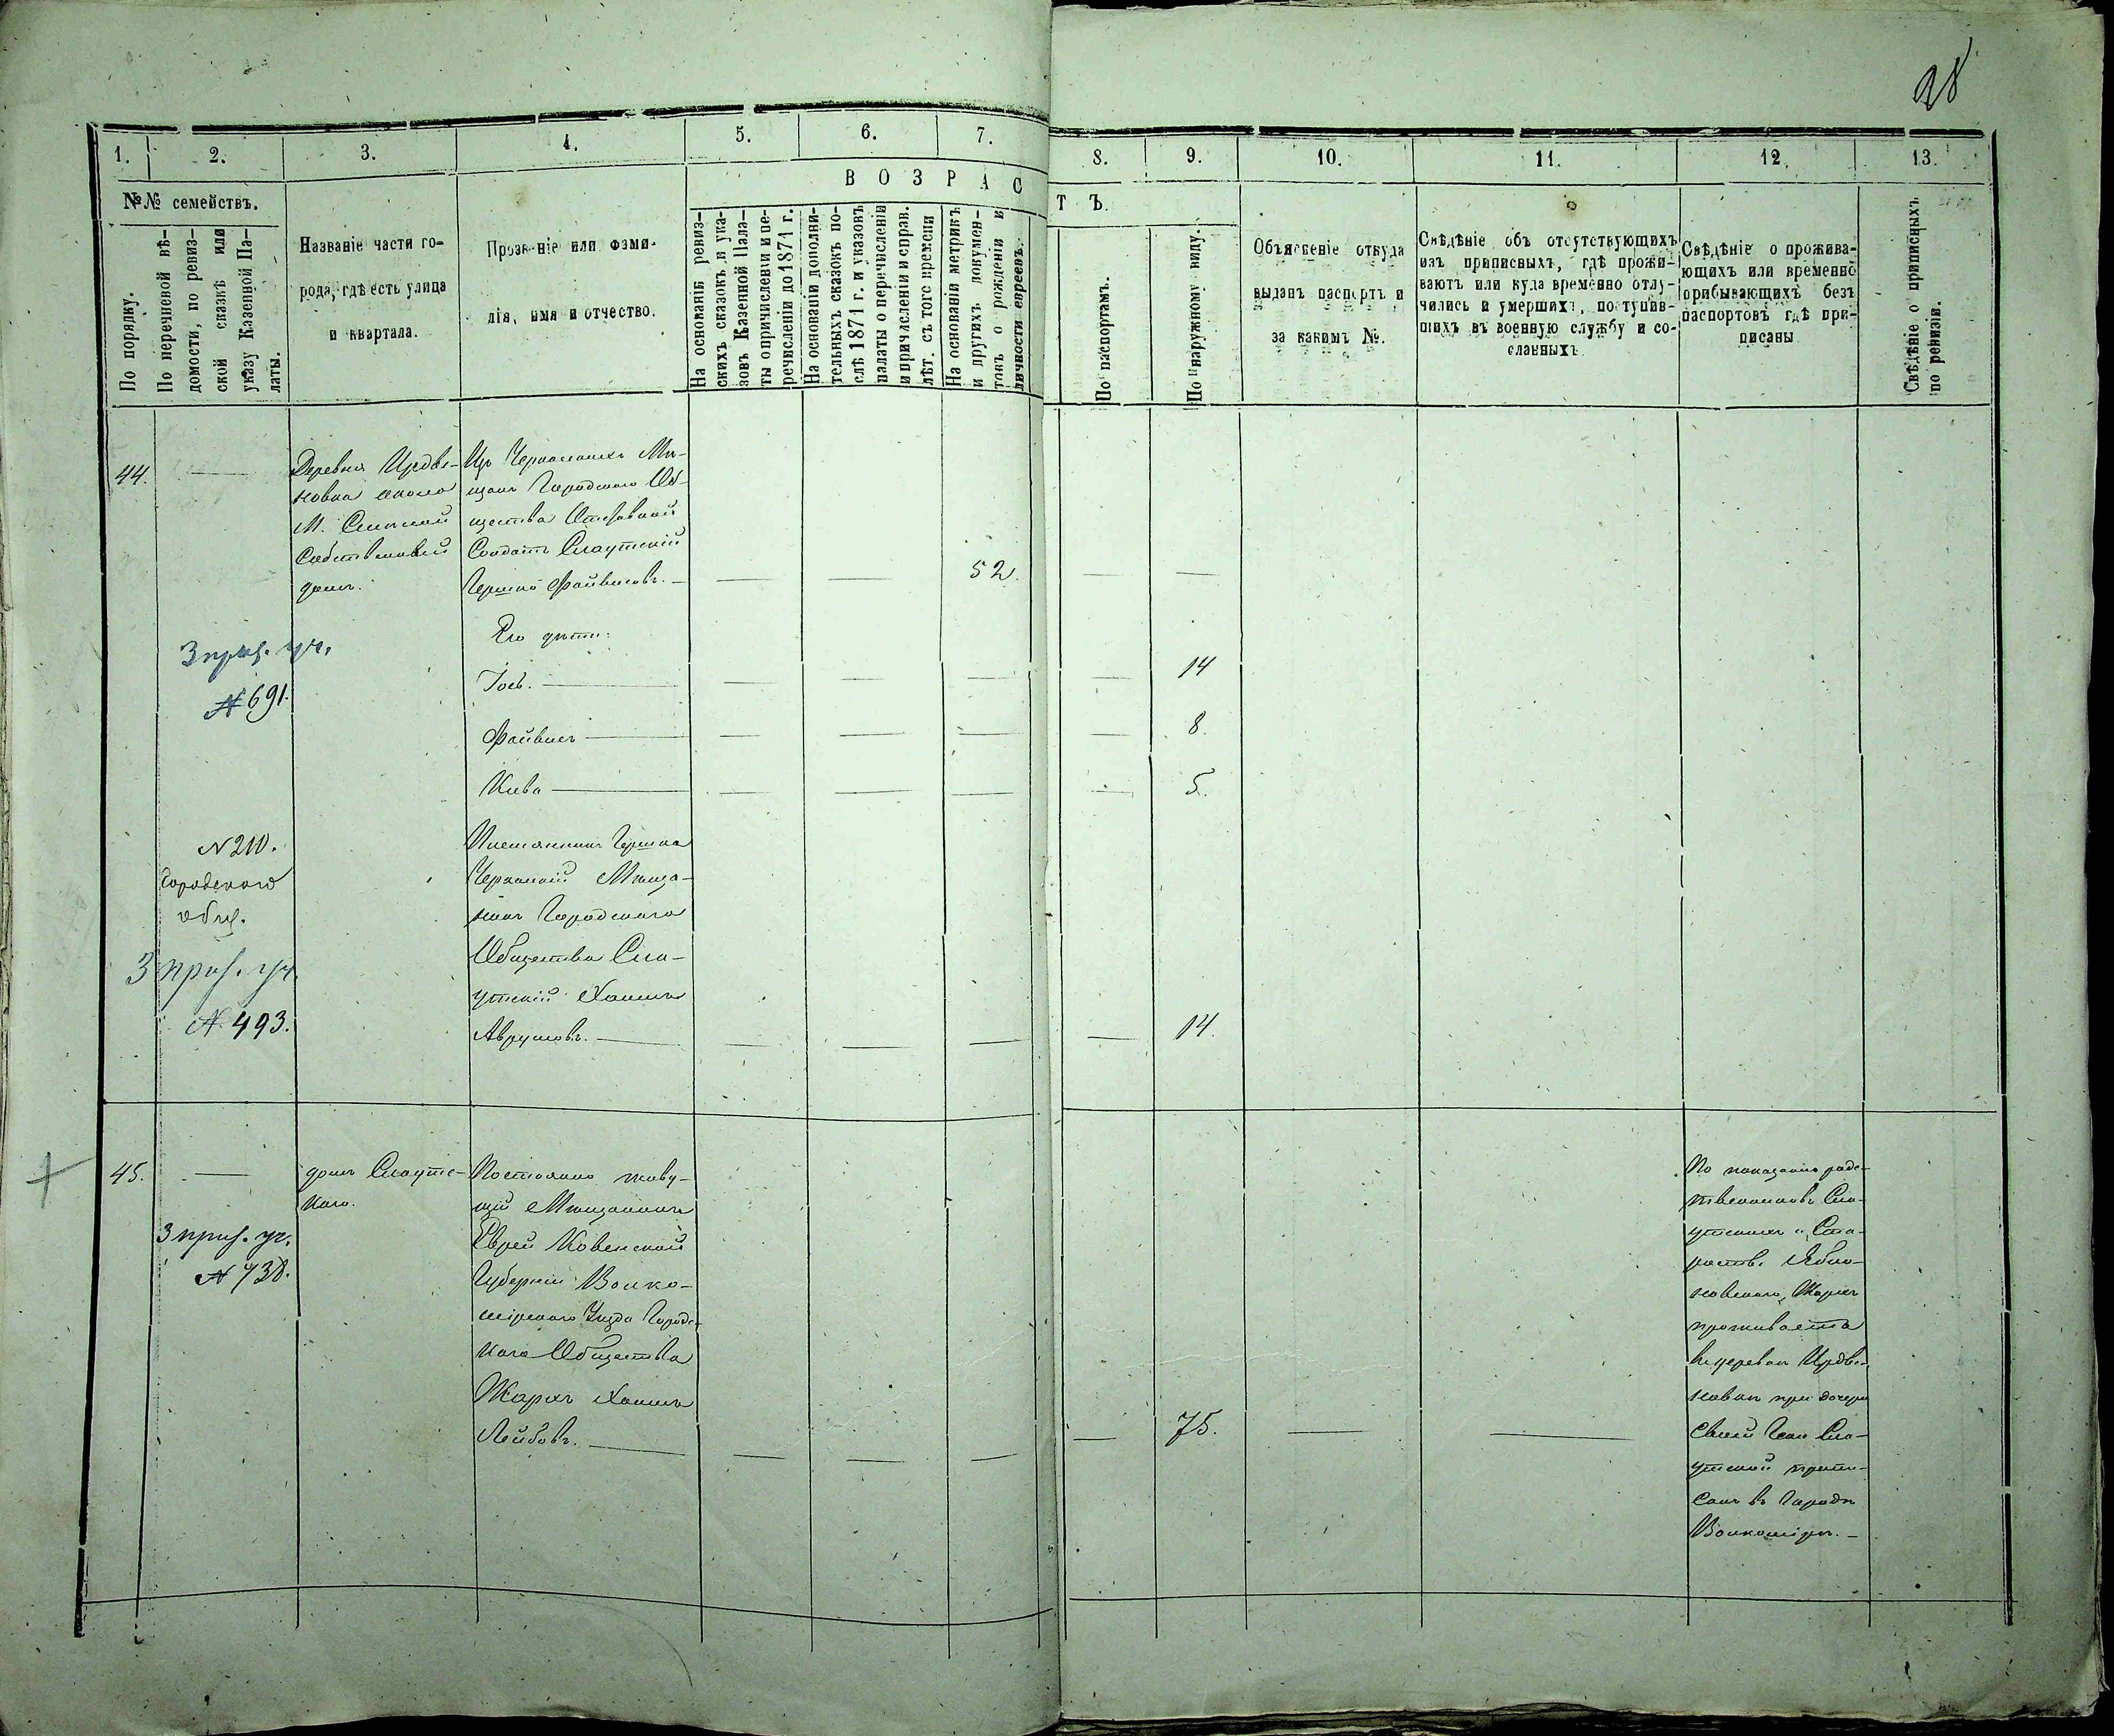 28
1.
2.
3.
4.
5.
6.
7.
8.
9.
10.
11.
12.
13.
№№ семействъ.
По порядку.
По перечневой вѣ-
домости, по ревиз-
ской сказкѣ или
указу Казенной Па-
латы.
Названіе части го-
рода, гдѣ есть улица
и квартала.
Прозваніе или фами-
лія, имя и отчество.
ВОЗРАС
ТЪ.
На основаніи ревиз-
скихъ сказокъ и ука-
зовъ Казенной Пала-
ты о причисленіи и пе-
речисленіи до 1871 г.
На основаніи дополни-
тельныхъ сказокъ по-
слѣ 1871 г. и указовъ
палаты о перечисленіи
и причисленіи и справ.
лѣт. съ того времени
На основаніи метрикъ
и другихъ докумен-
товъ о рожденіи и
личности евреевъ.
По паспортамъ.
По наружному виду.
Объясненіе откуда
выданъ паспортъ и
за какимъ №.
Свѣдѣніе объ отсутствующихъ
изъ приписныхъ, гдѣ прожи-
ваютъ или куда временно отлу-
чились и умершихъ, поступив-
шихъ въ военную службу и со-
сланныхъ.
Свѣдѣніе о прожива-
ющихъ или временно
прибывающихъ безъ
паспортовъ гдѣ при-
писаны
Свѣдѣніе о приписныхъ
по ревизіи.
44.
Деревня Ирдве-
новка около
М. Смѣлой
Собственный
домъ.
Изъ Черкаскихъ Мѣ-
щанъ Городского Об-
щества Отставной
Солдатъ Слаутскій
Гершко Файвишовъ. —
52.
Его дѣти:
3 приз. уч.
№ 691.
Іось. —
14
Файвишъ —
8
Кива —
5.
N 210.
Городского
общ.
3 приз. уч.
N. 493.
Племянникъ Гершка
Черкаскій Мѣща-
нинъ Городскаго
Общества Сла-
утскій Хаимъ
Аврумовъ. —
14.
45. —
3 приз. уч.
N 738.
домъ Слаутс-
каго.
Постоянно живу-
щій Мѣщанинъ
Еврей Ковенской
Губерніи Вилко-
мірскаго Уѣзда Городс-
каго Общества
Жархъ Хаимъ
Лейбовъ. —
75.
По показанію родс-
твенниковъ Сла-
утскихъ и Ста-
росты Ябло-
новскаго, Жархъ
проживаетъ
въ деревнѣ Ирдве-
новкѣ при дочери
Своей Сла-
утской припи-
санъ въ Городѣ
Вилкомірѣ. —